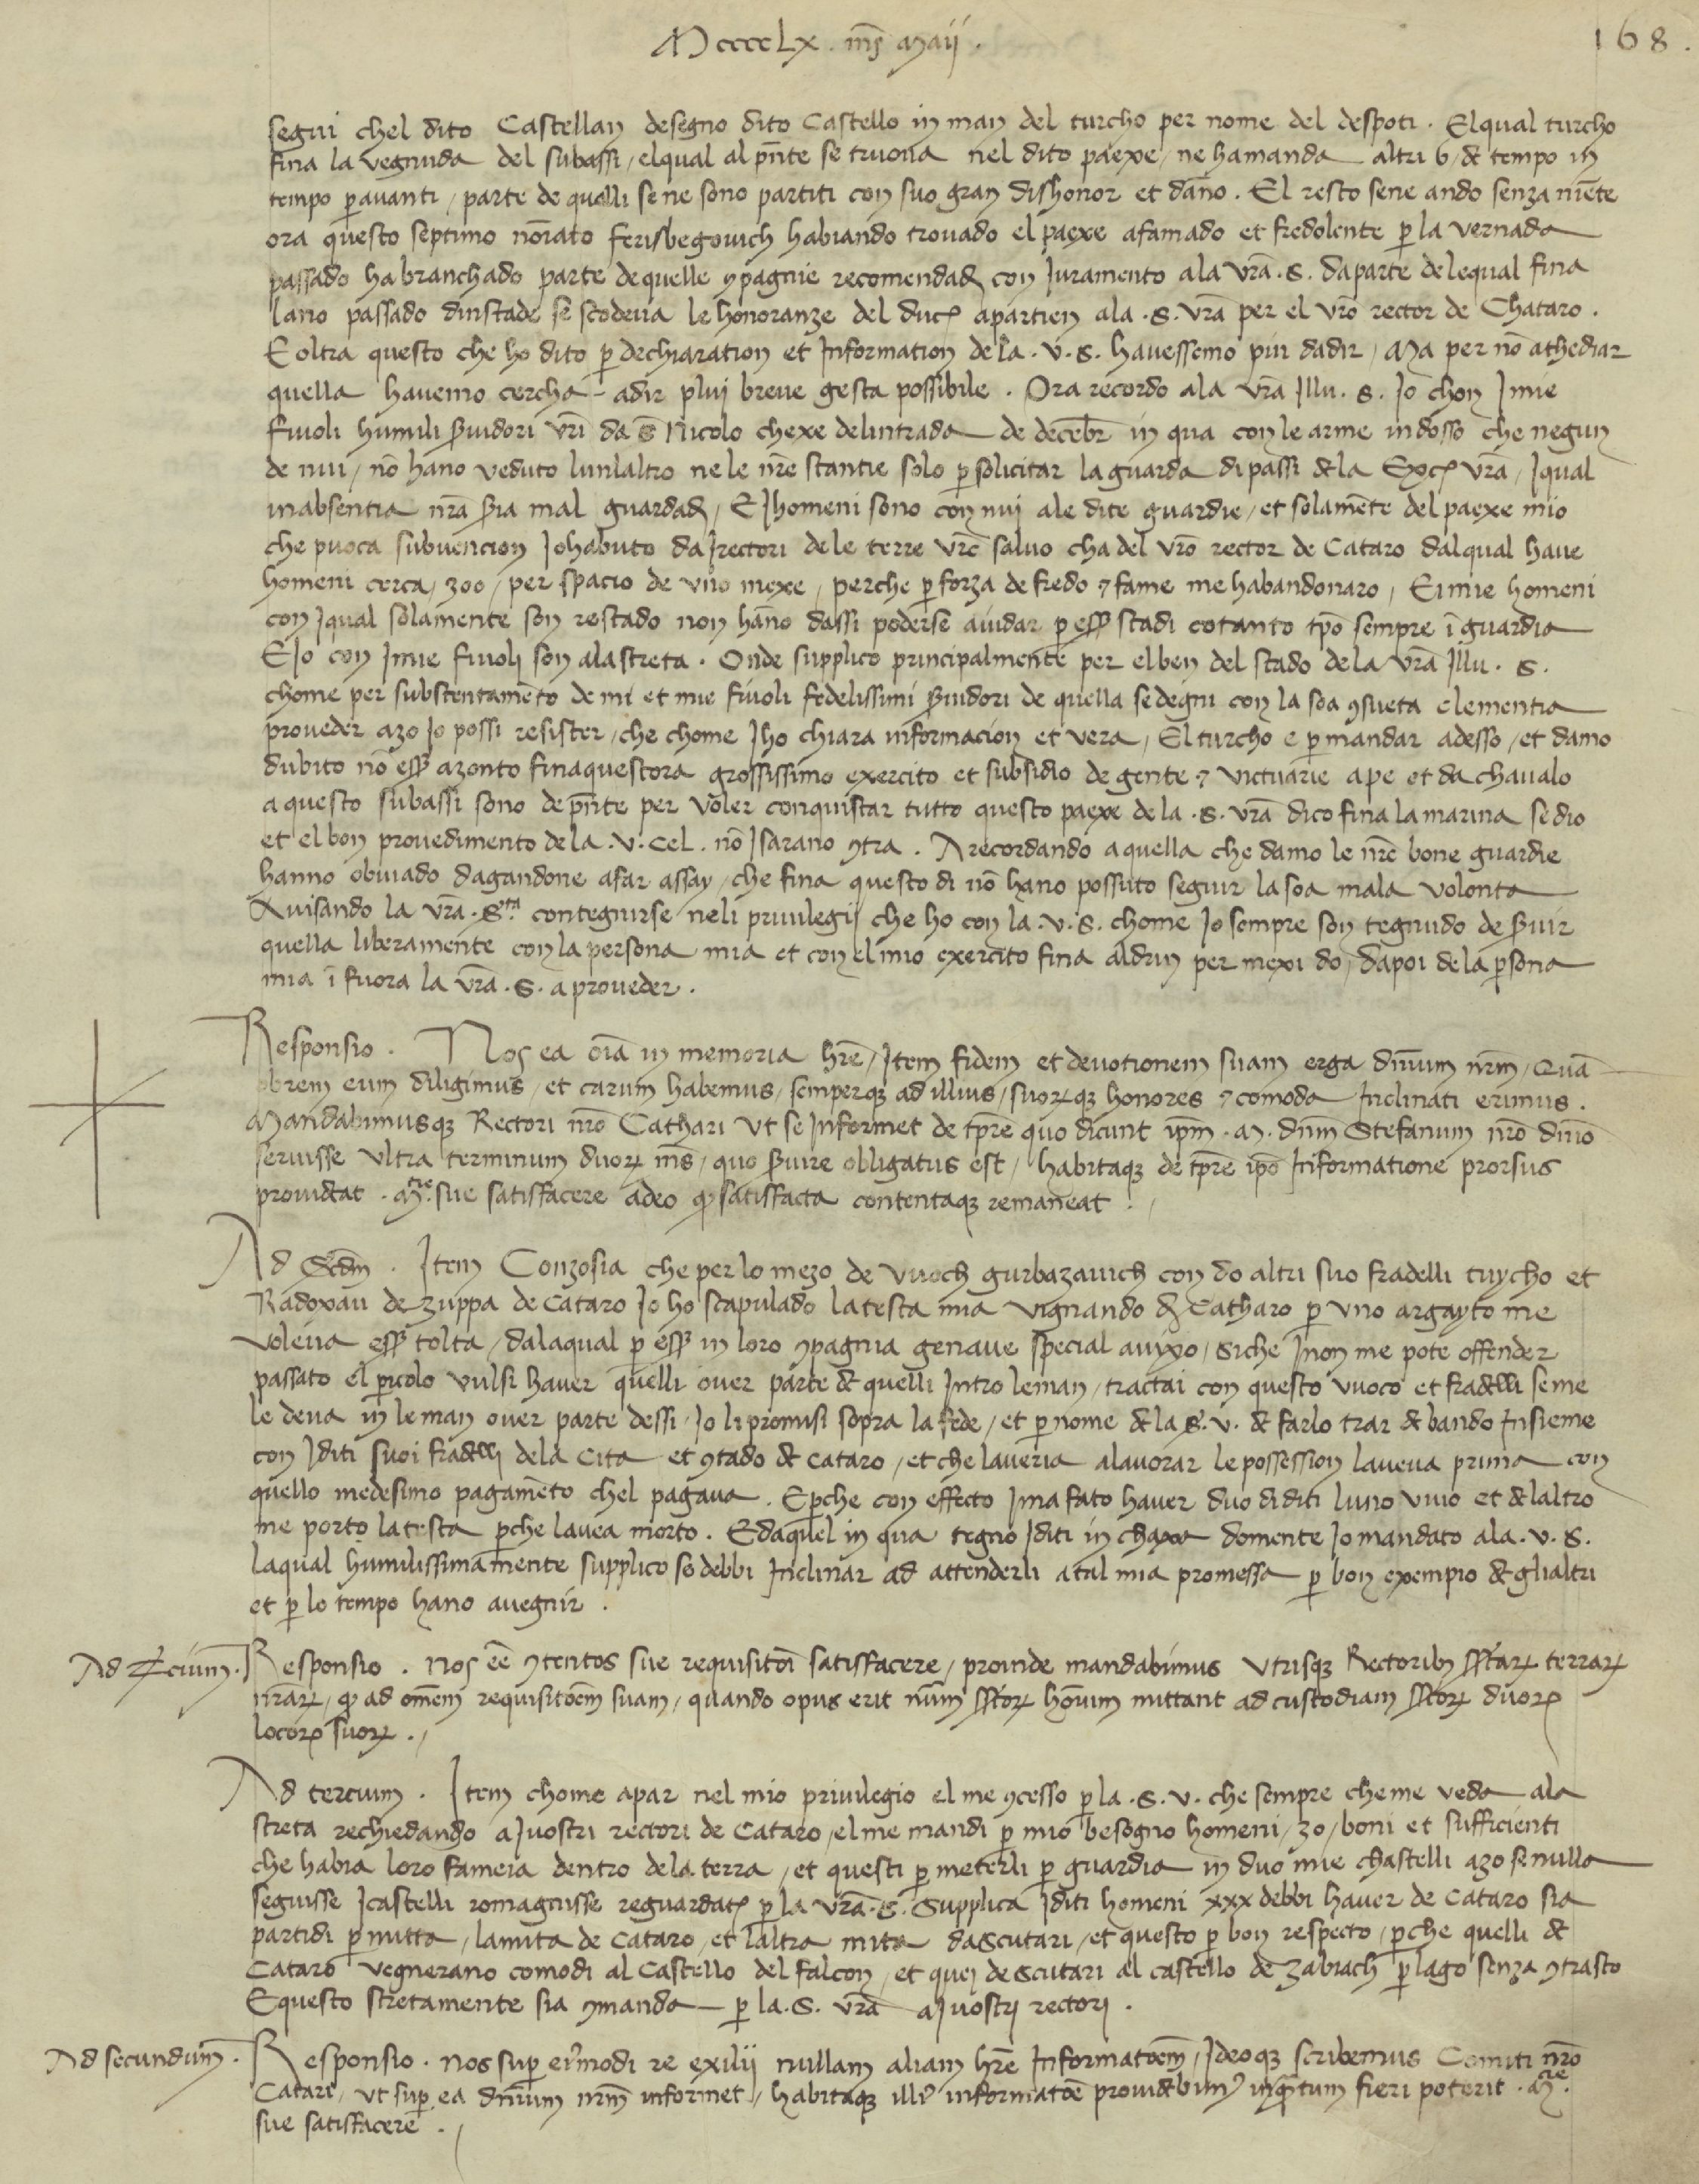 MccccLx. mēs maii.
168.
segui chel dito Castellan desegno dito Castello in man del turcho per nome del despoti. Elqual turcho
fina la vegnuda del subassi, elqual al pn̄te se truova nel dito paexe, ne hamanda altri 6, de tempo in
tempo ꝑavanti, parte de quelli se ne sono partiti con suo gran dishonor et dāno. El resto sene ando senza niēte
ora questo septimo nōīato ferisbegovich habiando trovado el paexe afamado et fredolente ꝑ la vernada
passado ha branchado parte de quelle ꝯpagnie recomendade con Iuramento ala vrā .S. da parte delequal fina
lano passado dinstade se scodeua le honoranze del ducꝭ apartien ala .S. vrā per el vrō rector de Chataro.
E oltra questo che ho dito ꝑ dechiaration et Information de la .V.S. havessemo piui dadir, Ma per nō athediar
quella havemo cercha adir plui breue gesta possibile. Ora recordo ala vrā Illu. S. Io chon I mie
fiuoli humili ẜuidori vrī da S̄ Nicolo chexe delintrada de decebr̄ in qua con le arme indosso che negun
de nui, nō hano veduto lunlaltro ne le nrē stantie solo ꝑ solicitar la guarda di passi de la Excꝭ vrā, Iqual
inabsentia nrā ẜia mal guardade, E I homeni sono con nui ale dite guardie, et solamēte del paexe mio
che puoca subuencion Io habuto da I rectori de le terre vrē saluo cha del vrō rector de Cataro dalqual haue
homeni cerca, 300, per spacio de uno mexe, perche ꝑ forza de fredo ⁊ fame me habandonaro, Ei mie homeni
con Iqual solamente son restado non hāno dassi poderse aiudar ꝑ esser stadi cotanto tꝑo sempre ī guardia
E Io con I mie fiuoli son ala streta. Onde supplico principalmente per elben del stado de la vrā Illu. S.
chome per substentamēto de mi et mie fiuoli fedelissimi ẜuidori de quella se degni con la soa ꝯsueta clementia
proueder azo Io possi resister, che chome I ho chiara informacion et vera, El turcho e ꝑ mandar adesso, et damo
dubito nō esser azonto finaquestora grossissimo exercito et subsidio de gente ⁊ victuarie a pe et da chaualo
a questo subassi sono de pn̄te per voler conquistar tutto questo paexe de la .S. vrā dico fina la marina se dio
et el bon prouedimento de la .V. Cel. nō I sarano ꝯtra. Arecordando a quella che damo le nrē bone guardie
hanno obuiado dagandone afar assay, che fina questo di nō hano possuto seguir la soa mala volonta
Auisando la vrā .S.ta contegnirse neli priuilegij che ho con la .V.S. chome Io sempre son tegnudo de ẜuir
quella liberamente con la persona mia et con el mio exercito fina aldrin per mexi do, dapoi de la ꝑsona
mia ī fuora la vrā .S. a proueder.
Responsio. Nos ea oīa in memoria hrē, Item fidem et deuotionem suam erga dn̄ium nrm̄, Quā
obrem eum diligimus, et carum habemus, semperqꝫ ad illius, suorꝝqꝫ honores ⁊ comoda Inclinati erimus.
Mandabimusqꝫ Rectori nrō Cathari Vt se Informet de tꝑre quo dicunt ipm̄ .M. dnm̄ Stefanum nrō dn̄io
seruisse Vltra terminum duorꝝ mēs, quo ẜuire obligatus est, habitaqꝫ de tꝑre ipō Informatione prorsus
prouideat .M.tie sue satisfacere adeo qꝫ satisfacta contentaqꝫ remaneat.
Ad Scdm̄. Item Conzosia che per lo mezo de Vuoch gurbazauich con do altri suo fradelli tuycho et
Radoxau de Zuppa de Cataro Io ho scapulado la testa mia vignando de Catharo ꝑ vno argayto me
voleua esser tolta, dalaqual ꝑ esser in loro ꝯpagnia genaue special auixo, siche I non me pote offender
passato el ꝑicolo vulsi hauer quelli ouer parte de quelli Intro leman, tractai con questo vuoco et fradelli se me
le deua in le man ouer parte dessi, Io li promisi sopra la fede, et ꝑ nome de la S. V. de farlo trar de bando Insieme
con I diti suoi fradelli dela Cita et ꝯtado de Cataro, et che laueria alauorar le possession laueua prima con
quello medesimo pagamēto chel pagaua. E ꝑche con effecto I ma fato hauer duo di diti luno viuo et de laltro
me porto la testa ꝑche lauea morto. E daquel in qua tegno I diti in chaxa domente Io mandato ala .V.S.
laqual humilissimamente supplico se debbi Inclinar ad attenderli a tal mia promessa ꝑ bon exempio de gli altri
et ꝑ lo tempo hano auegnir.
Ad Terciūm. Responsio. Nos eē ꝯtentos sue requisitōi satisfacere, proinde mandabimus Vtrisqꝫ Rectoribꝫ ss̄tarꝝ terrarꝝ
nrārꝝ, qꝫ ad omēm requisitōem suam, quando opus erit nūm ss̄torꝝ hoīum mittant ad custodiam ss̄torꝝ duorꝝ
locorꝝ suorꝝ.
Ad tercium. Item chome apar nel mio priuilegio el me ꝯcesso ꝑ la .S.V. che sempre che me veda ala
streta rechiedando a I vostri rectori de Cataro, el me mandi ꝑ mio besogno homeni, 30, boni et sufficienti
che habia loro fameia dentro dela terra, et questi ꝑ meterli ꝑ guardia in duo mie chastelli azo se nulla
seguisse I castelli romagnisse reguardatꝭ ꝑ la vrā .S. Supplica I diti homeni xxx debbi hauer de Cataro sia
partidi ꝑ mitta, lamita de Cataro, et laltra mita da Scutari, et questo ꝑ bon respecto, ꝑche quelli de
Cataro vegnerano comodi al Castello del falcon, et quei de Scutari al castello de Zabiach ꝑ lago senza ꝯtrasto
E questo stretamente sia ꝯmanda ꝑ la .S. vrā a I vostri rectori.
Ad secundūm. Responsio. Nos suꝑ eiꝰmodi re exilii nullam aliam hrē Informatōem, Ideoqꝫ scribemus Comiti nrō
Catari, vt suꝑ ea dn̄ium nrm̄ informet, habitaqꝫ illiꝰ informatōe prouidebimꝰ inqꝫtum fieri poterit .M.tie
sue satisfacere.